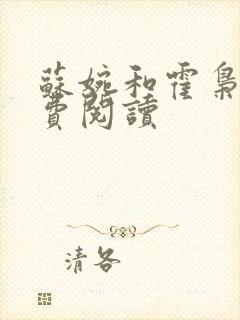 蘇婉和霍梟
費閱讀
清各